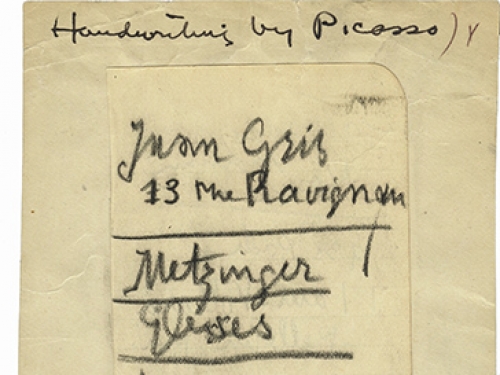 Handwriting by Picasso)
Juan Gris
13 rue Ravignan
Metzinger
Gleises